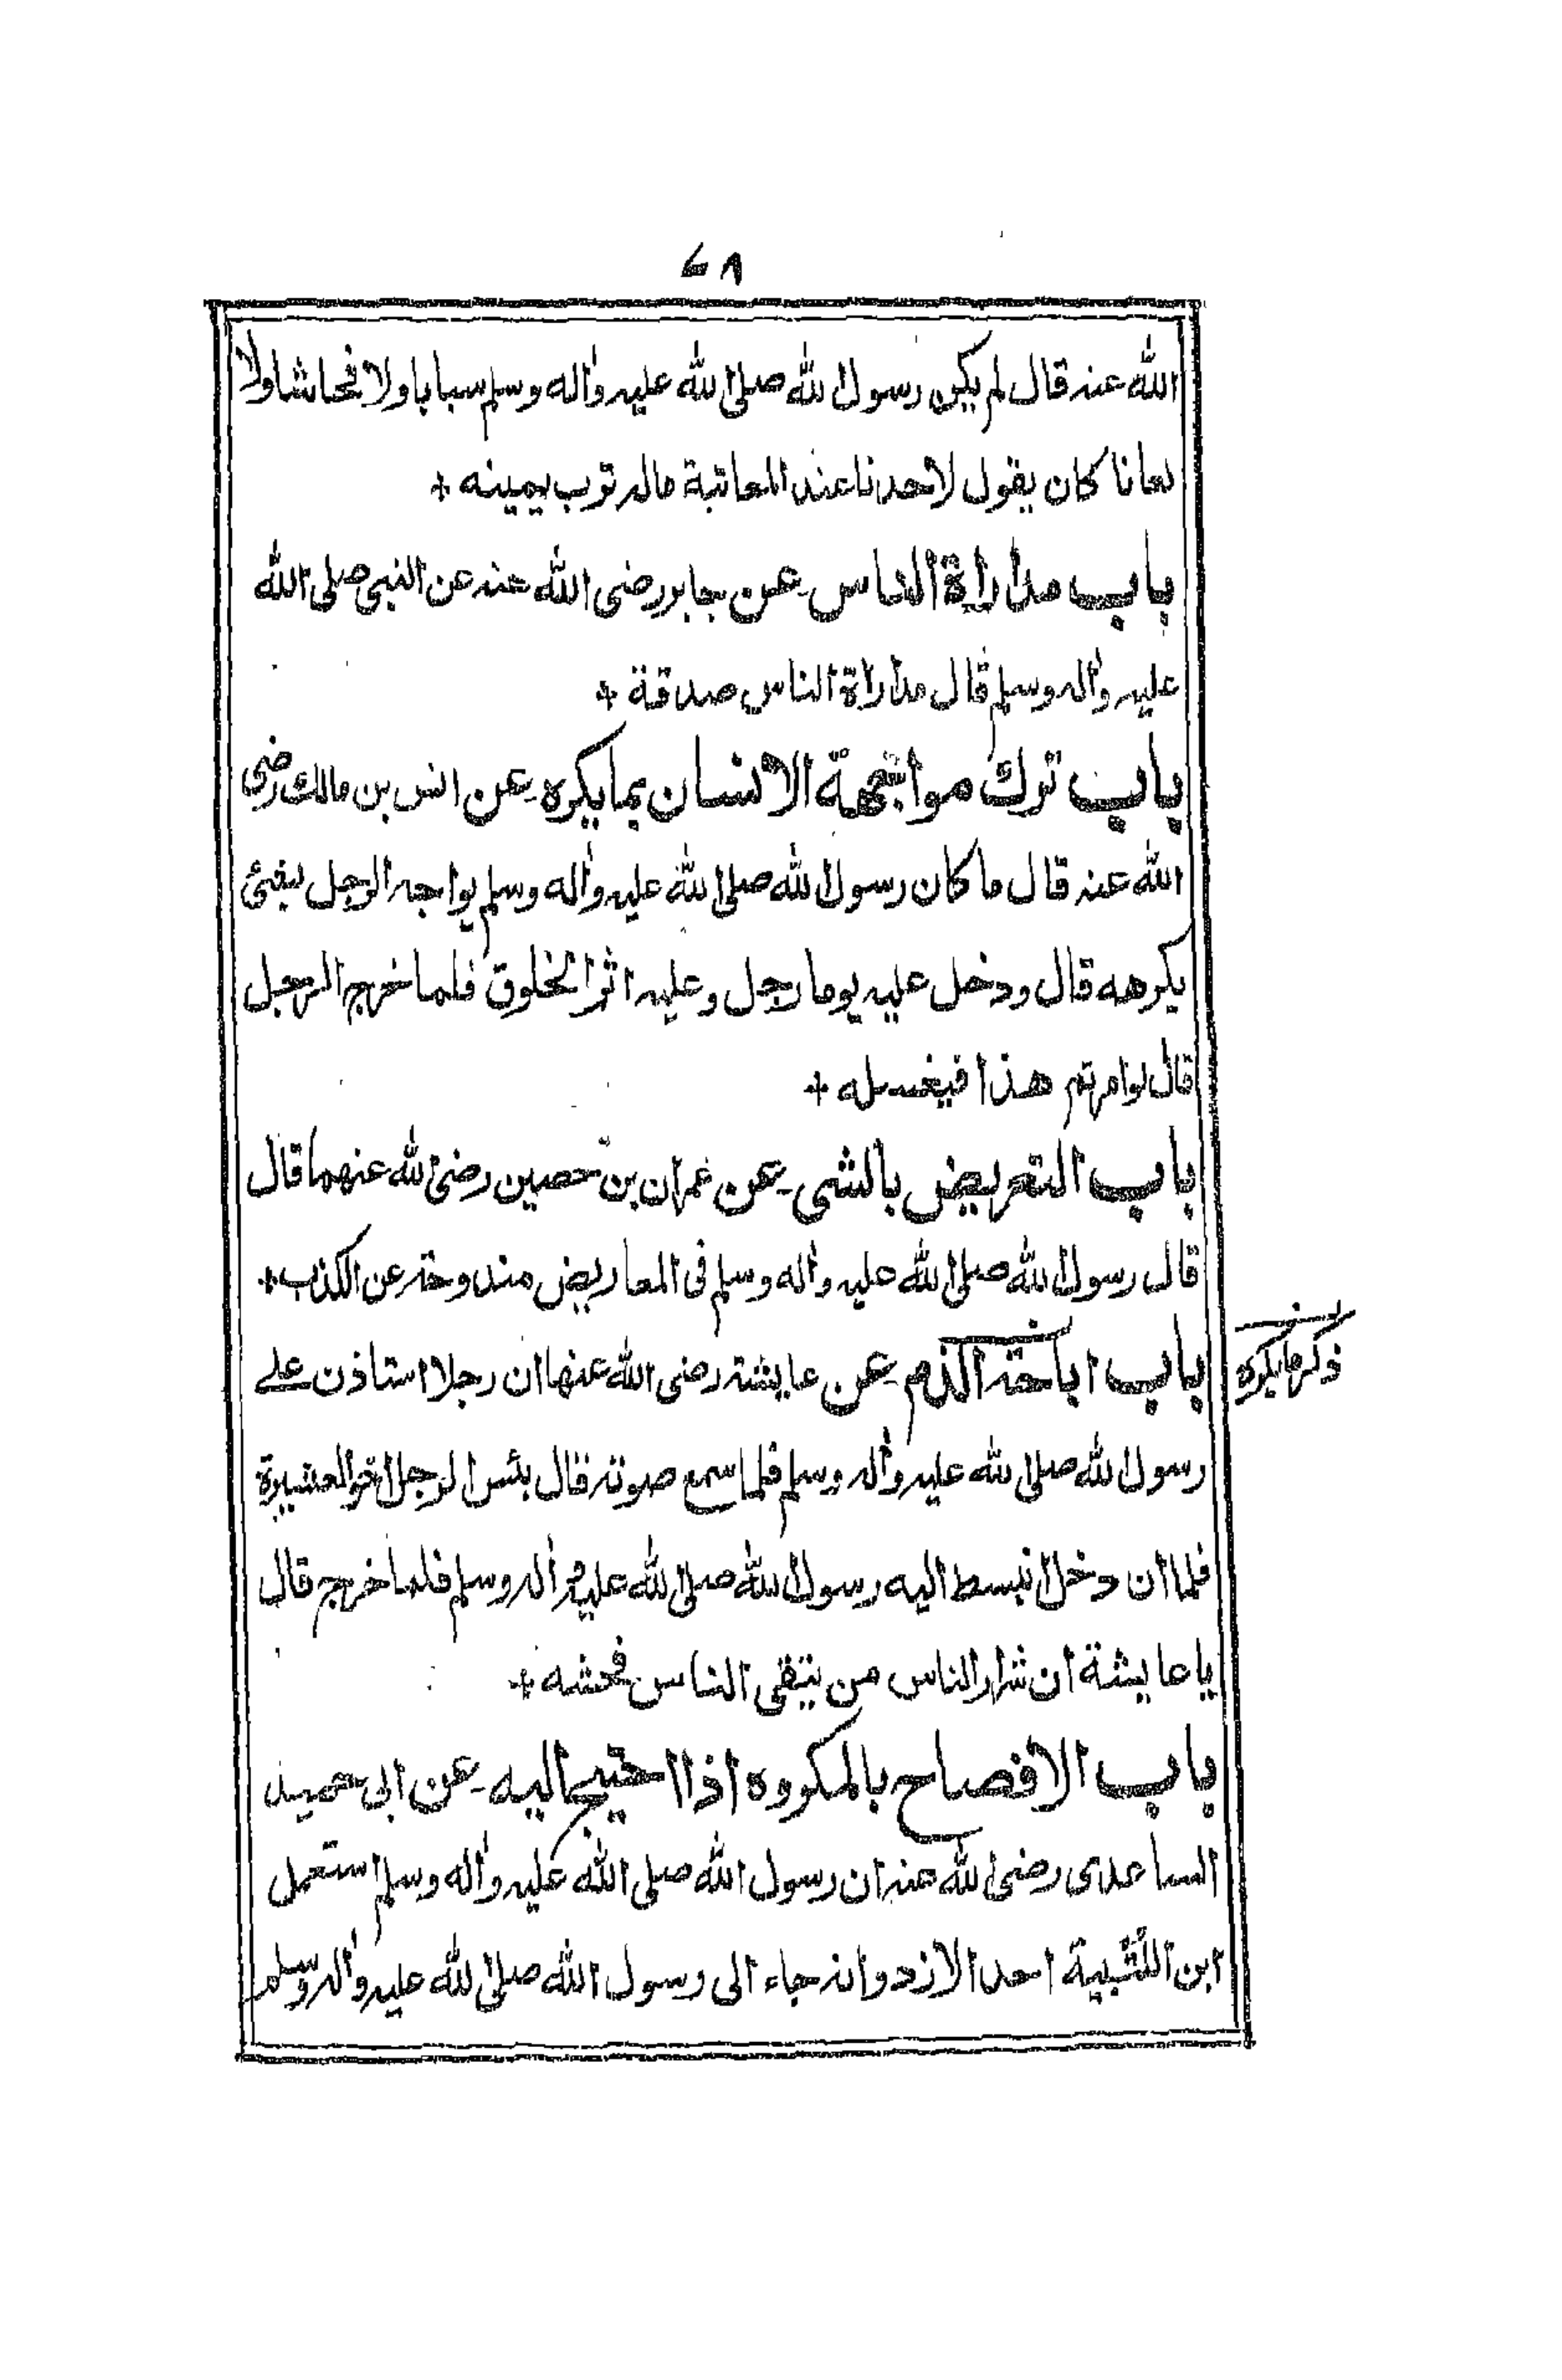 ٧٨
الله عنه قال لم يكن رسول الله صلى الله عليه واله وسلم سبابا ولا فحاشا ولا
لعانا كان يقول لاحدنا عند المعاتبة ماله ترب يمينه +
باب مداراة الناس عن جابر رضى الله عنه عن النبى صلى الله
عليه واله وسلم قال مداراة الناس صدقة +
باب ترك مواجهة الانسان بما يكره عن انس بن مالك رضى
الله عنه قال ما كان رسول الله صلى الله عليه واله وسلم يواجه الرجل بشئ
يكرهه قال ودخل عليه يوما رجل وعليه اثر الخلوق فلما خرج الرجل
قال لو امرتم هذا فيغسله +
باب التعريض بالشى عن عمران بن حصين رضى الله عنهما قال
قال رسول الله صلى الله عليه واله وسلم فى المعاريض مندوحة عن الكذب +
باب اباحة الذم عن عايشة رضى الله عنها ان رجلا استاذن على
ذكر ما يكره
رسول الله صلى الله عليه واله وسلم فلما سمع صوته قال بئس الرجل اخو العشيرة
فلما ان دخل انبسط اليه رسول الله صلى الله عليه واله وسلم فلما خرج قال
يا عايشة ان شرار الناس من يتقى الناس فحشه +
باب الافصاح بالمكروه اذا احتيج اليه عن ابى حميد
الساعدى رضى الله عنه ان رسول الله صلى الله عليه واله وسلم استعمل
ابن اللتبية احد الازد وانه جاء الى رسول الله صلى الله عليه واله وسلم